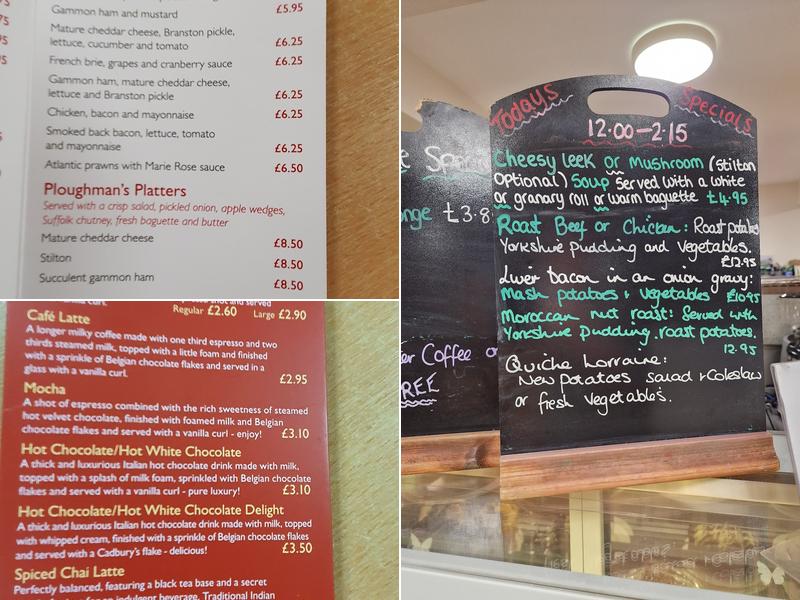 Gammon ham and mustard £5.95
Mature cheddar cheese, Branston pickle,
lettuce, cucumber and tomato £6.25
French brie, grapes and cranberry sauce £6.25
Gammon ham, mature cheddar cheese,
lettuce and Branston pickle £6.25
Chicken, bacon and mayonnaise £6.25
Smoked back bacon, lettuce, tomato
and mayonnaise £6.25
Atlantic prawns with Marie Rose sauce £6.50
Ploughman's Platters
Served with a crisp salad, pickled onion, apple wedges,
Suffolk chutney, fresh baguette and butter
Mature cheddar cheese £8.50
Stilton £8.50
Succulent gammon ham £8.50
Regular £2.60 Large £2.90
Café Latte
A longer milky coffee made with one third espresso and two
thirds steamed milk, topped with a little foam and finished
with a sprinkle of Belgian chocolate flakes and served in a
glass with a vanilla curl. £2.95
Mocha
A shot of espresso combined with the rich sweetness of steamed
hot velvet chocolate, finished with foamed milk and Belgian
chocolate flakes and served with a vanilla curl - enjoy! £3.10
Hot Chocolate/Hot White Chocolate
A thick and luxurious Italian hot chocolate drink made with milk,
topped with a splash of milk foam, sprinkled with Belgian chocolate
flakes and served with a vanilla curl - pure luxury! £3.10
Hot Chocolate/Hot White Chocolate Delight
A thick and luxurious Italian hot chocolate drink made with milk, topped
with whipped cream, finished with a sprinkle of Belgian chocolate flakes
and served with a Cadbury's flake - delicious! £3.50
Spiced Chai Latte
Perfectly balanced, featuring a black tea base and a secret
an indulgent beverage. Traditional Indian
£3.8
Coffee or
FREE
Todays Specials
12.00-2.15
Cheesy leek or Mushroom (stilton
optional) Soup served with a white
or granary roll or warm baguette £4.95
Roast Beef or Chicken: Roast potatoes
Yorkshire pudding and vegetables.
£12.95
Liver bacon in an onion gravy:
Mash potatoes + vegetables £10.95
Moroccan nut roast: Served with
Yorkshire pudding, roast potatoes.
12.95
Quiche Lorraine:
New potatoes salad + Coleslaw
or fresh vegetables.